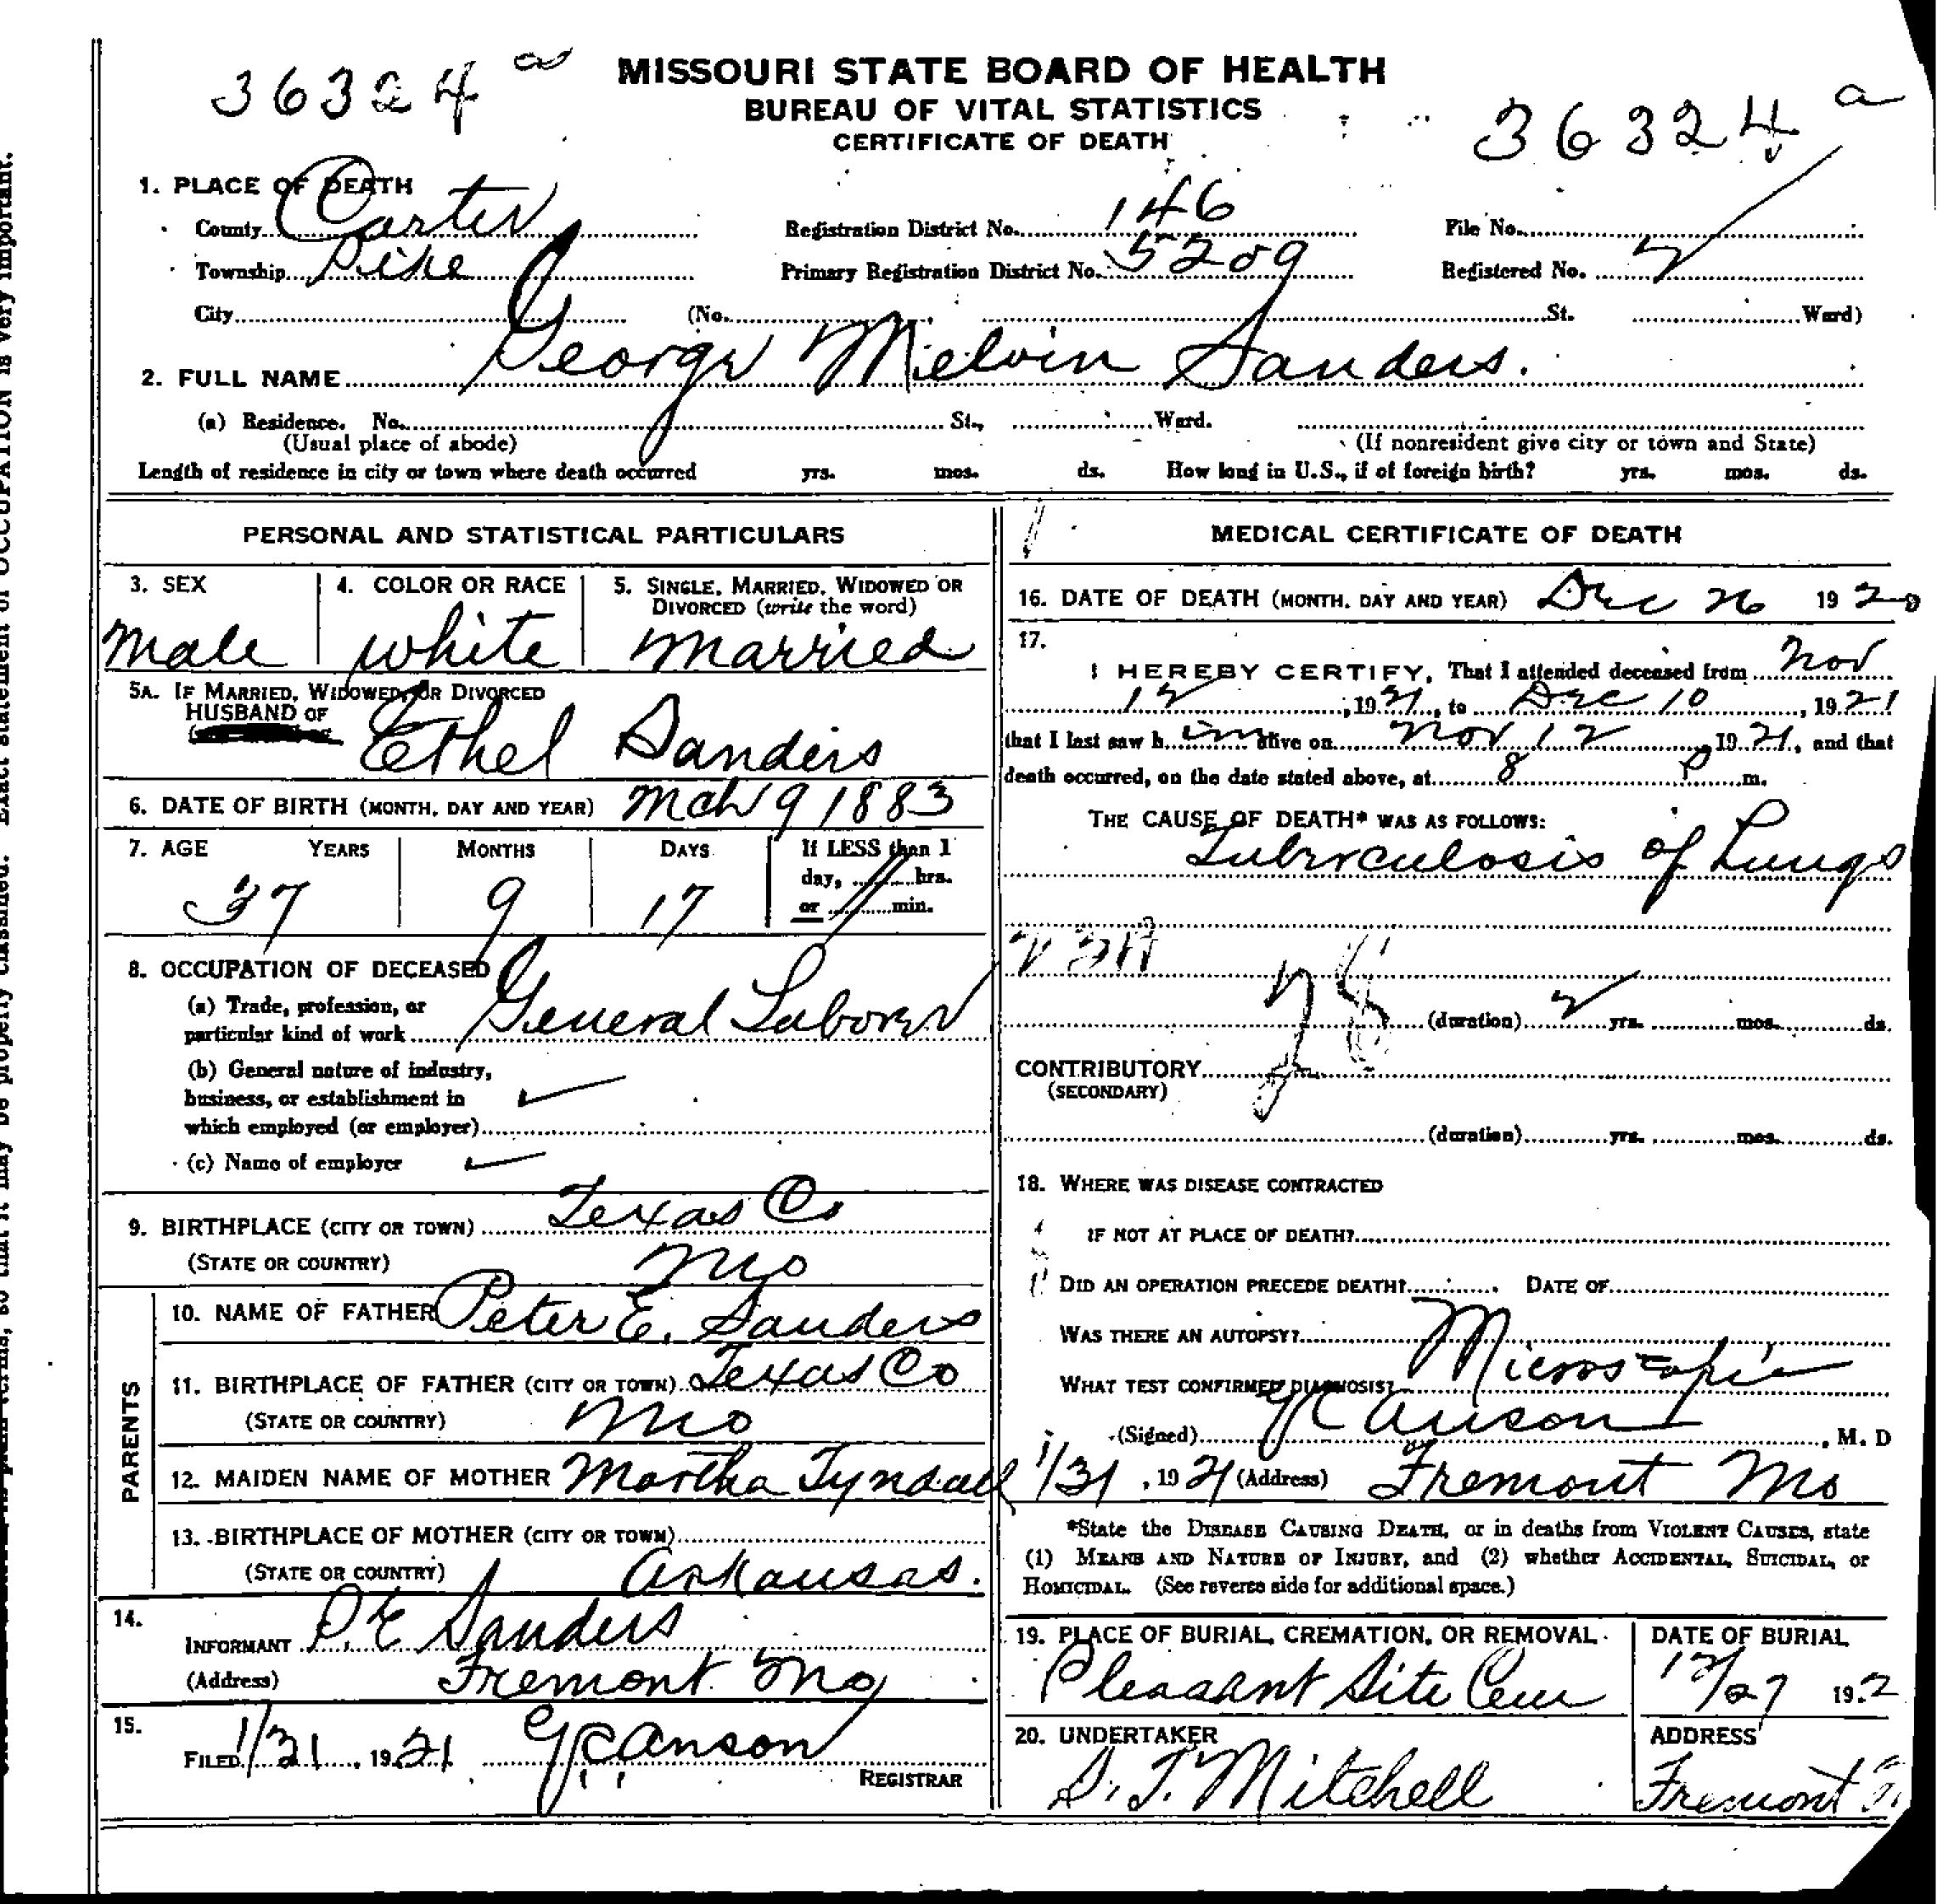 36324 a
MISSOURI STATE BOARD OF HEALTH
BUREAU OF VITAL STATISTICS
CERTIFICATE OF DEATH
36324 a
1. PLACE OF DEATH
County Carter Registration District No. 146 File No.
Township Pike Primary Registration District No. 5209 Registered No. 2
City (No. St. Ward)
2. FULL NAME George Melvin Sanders.
(a) Residence. No. St., Ward.
(Usual place of abode) (If nonresident give city or town and State)
Length of residence in city or town where death occurred yrs. mos. ds. How long in U.S., if of foreign birth? yrs. mos. ds.
PERSONAL AND STATISTICAL PARTICULARS
3. SEX 4. COLOR OR RACE 5. SINGLE, MARRIED, WIDOWED OR
DIVORCED (write the word)
Male white married
5A. IF MARRIED, WIDOWED, OR DIVORCED
HUSBAND OF
Ethel Sanders
6. DATE OF BIRTH (MONTH, DAY AND YEAR) Mch 9 1883
7. AGE YEARS MONTHS DAYS If LESS than 1
day, hrs.
or min.
37 9 17
8. OCCUPATION OF DECEASED
(a) Trade, profession, or
particular kind of work General Laborer
(b) General nature of industry,
business, or establishment in
which employed (or employer)
(c) Name of employer
9. BIRTHPLACE (CITY OR TOWN) Texas Co
(STATE OR COUNTRY) Mo
PARENTS
10. NAME OF FATHER Peter E. Sanders
11. BIRTHPLACE OF FATHER (CITY OR TOWN) Texas Co
(STATE OR COUNTRY) Mo
12. MAIDEN NAME OF MOTHER Martha Tyndall
13. BIRTHPLACE OF MOTHER (CITY OR TOWN)
(STATE OR COUNTRY) Arkansas.
14.
INFORMANT P. E Sanders
(Address) Fremont Mo
15.
FILED 1/31, 1921 Anson
REGISTRAR
MEDICAL CERTIFICATE OF DEATH
16. DATE OF DEATH (MONTH, DAY AND YEAR) Dec 26 1920
17.
I HEREBY CERTIFY, That I attended deceased from Nov
12, 1921, to Dec 10, 1921
that I last saw him alive on Nov 12, 1921, and that
death occurred, on the date stated above, at 8 P m.
THE CAUSE OF DEATH* WAS AS FOLLOWS:
Tuberculosis of Lungs
(duration) 2 yrs. mos. ds.
CONTRIBUTORY
(SECONDARY)
(duration) yrs. mos. ds.
18. WHERE WAS DISEASE CONTRACTED
IF NOT AT PLACE OF DEATH?
DID AN OPERATION PRECEDE DEATH? DATE OF
WAS THERE AN AUTOPSY?
WHAT TEST CONFIRMED DIAGNOSIS? Microscopic
(Signed) Anson, M. D
1/31, 1921 (Address) Fremont Mo
*State the DISEASE CAUSING DEATH, or in deaths from VIOLENT CAUSES, state
(1) MEANS AND NATURE OF INJURY, and (2) whether ACCIDENTAL, SUICIDAL, or
HOMICIDAL. (See reverse side for additional space.)
19. PLACE OF BURIAL, CREMATION, OR REMOVAL DATE OF BURIAL
Pleasant Site Cem 12/27 192
20. UNDERTAKER ADDRESS
S. T. Mitchell Fremont